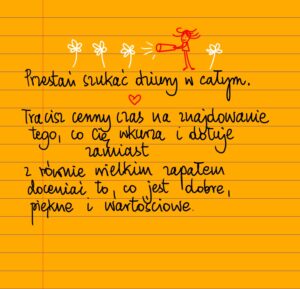 Przestań szukać dziury w całym.
Tracisz cenny czas na znajdowanie
tego, co Cię wkurza i dołuje
zamiast
z równie wielkim zapałem
doceniać to, co jest dobre,
piękne i wartościowe.